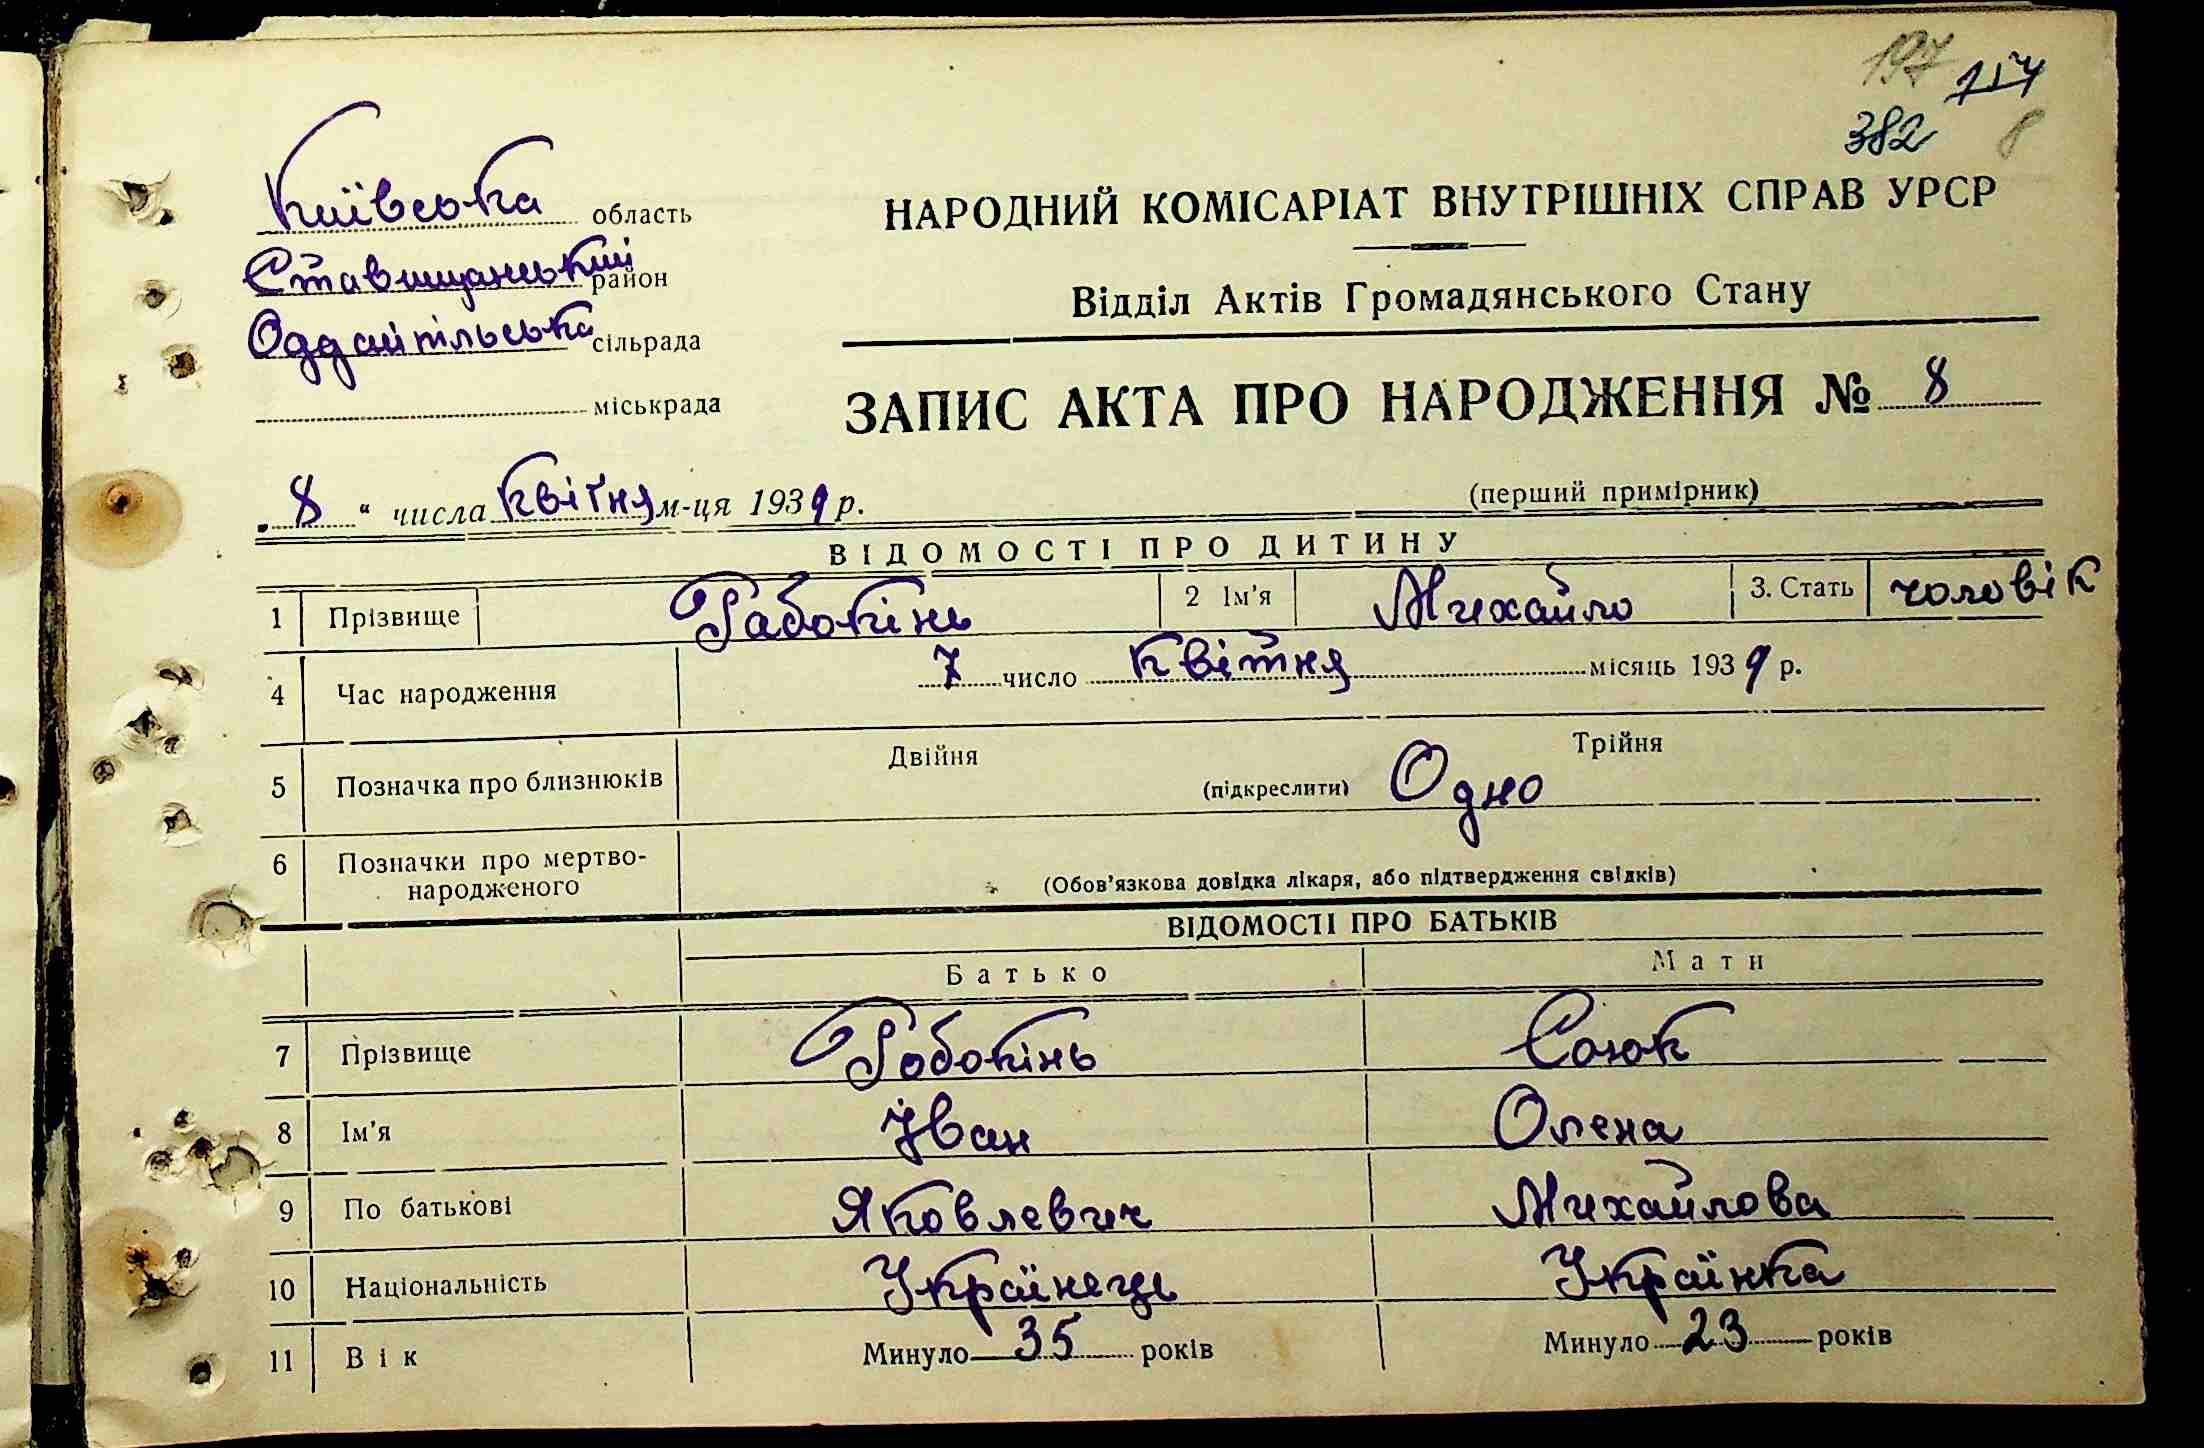 197 157
382 8
Київська область
Ставищанський район
Оддайпільська сільрада
міськрада
НАРОДНИЙ КОМІСАРІАТ ВНУТРІШНІХ СПРАВ УРСР
Відділ Актів Громадянського Стану
ЗАПИС АКТА ПРО НАРОДЖЕННЯ № 8
„ 8 “ числа квітня м-ця 1939 р.
(перший примірник)
ВІДОМОСТІ ПРО ДИТИНУ
1 Прізвище Рабокінь 2 Ім'я Михайло 3. Стать чоловік
4 Час народження 7 число квітня місяць 1939 р.
5 Позначка про близнюків Двійня (підкреслити) Одно Трійня
6 Позначки про мертво-
народженого (Обов'язкова довідка лікаря, або підтвердження свідків)
ВІДОМОСТІ ПРО БАТЬКІВ
Батько Мати
7 Прізвище Робокінь Союк
8 Ім'я Іван Олена
9 По батькові Яковлевич Михайлова
10 Національність Українець Українка
11 Вік Минуло 35 років Минуло 23 років